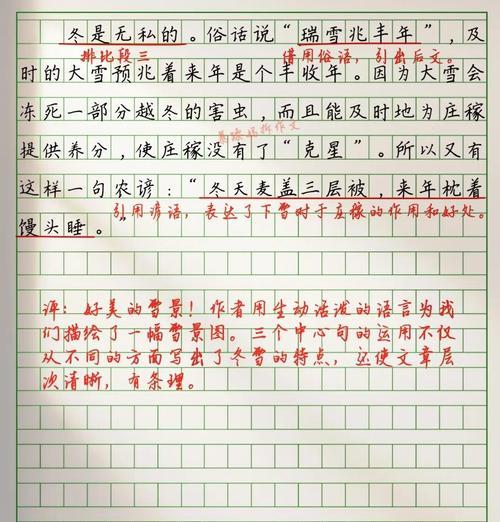 冬是无私的。俗话说“瑞雪兆丰年”，及
排比段三 借用俗语，引出后文。
时的大雪预兆着来年是个丰收年。因为大雪会
冻死一部分越冬的害虫，而且能及时地为庄稼
提供养分，使庄稼没有了“克星”。所以又有
这样一句农谚：“冬天麦盖三层被，来年枕着
引用谚语，表达了下雪对于庄稼的作用和好处。
馒头睡。”
评：好美的雪景！作者用生动活泼的语言为我
们描绘了一幅雪景图。三个中心句的运用不仅
从不同的方面写出了冬雪的特点，还使文章层
次清晰，有条理。